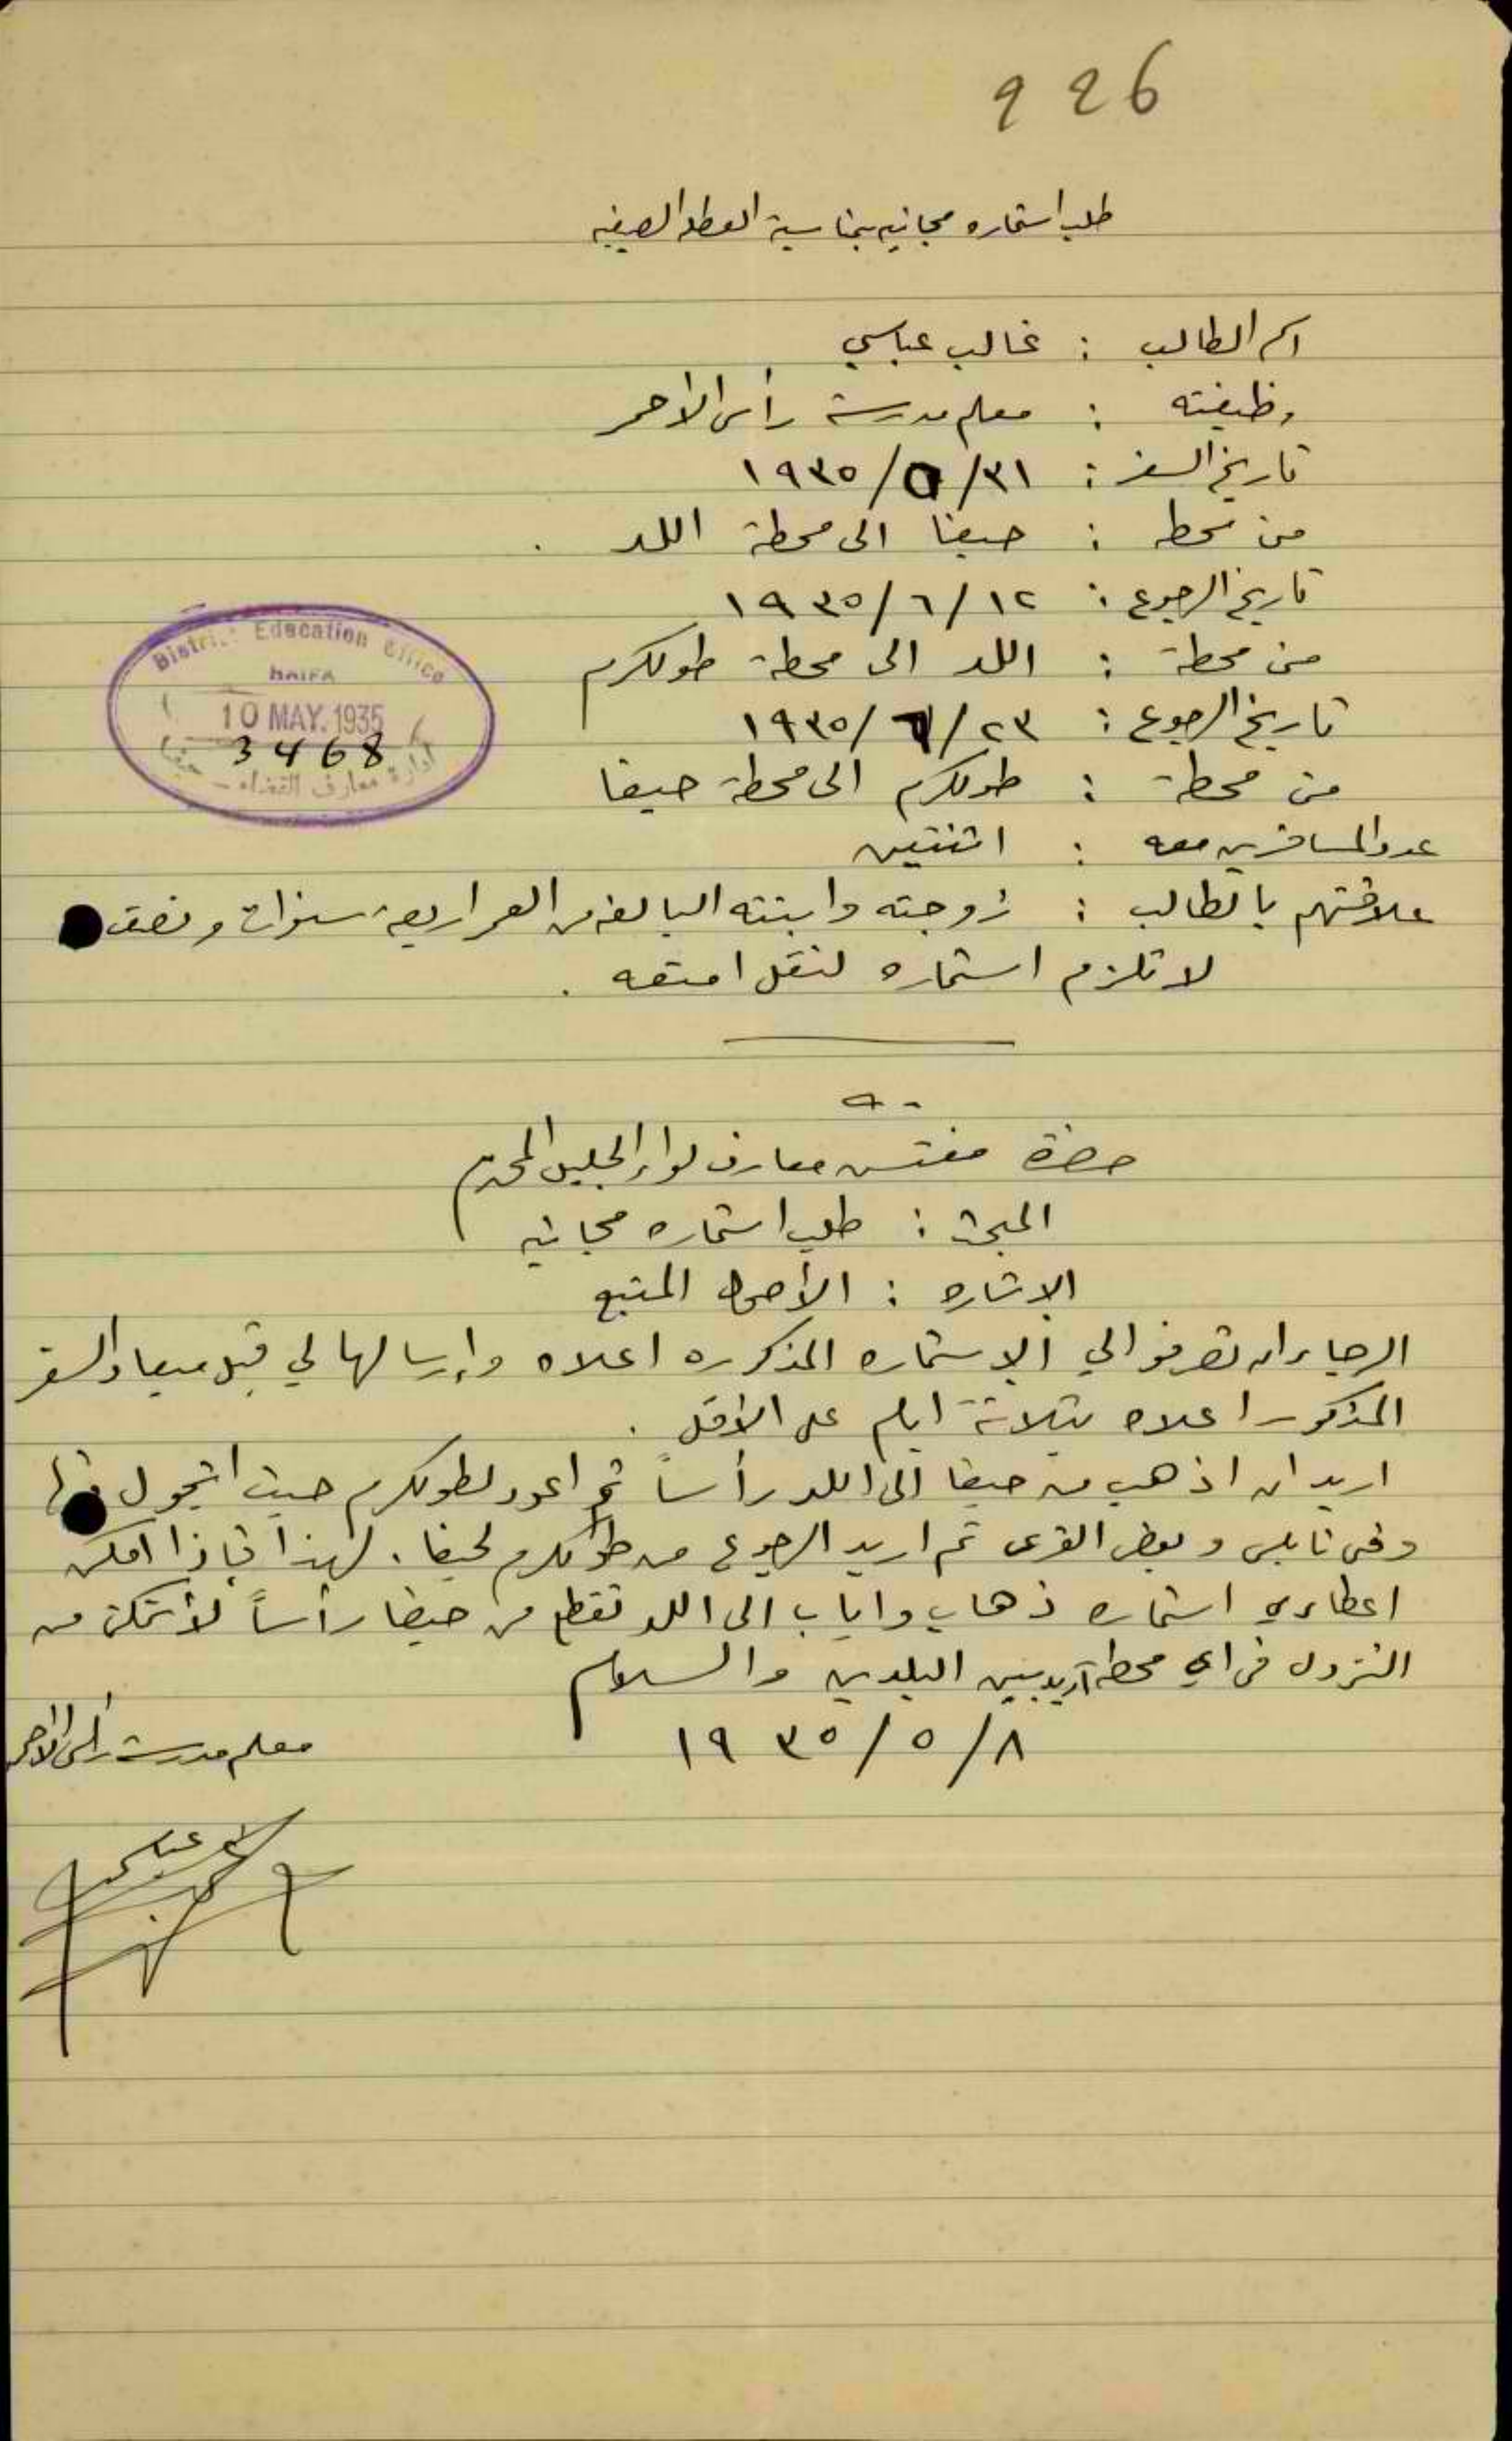 926
طلب استماره مجانيه بمناسبة العطله الصيفيه
اسم الطالب : غالب عباسي
وظيفته : معلم مدرسة رأس الاحمر
تاريخ السفر : ٣١/٥/١٩٣٥
من محطه : حيفا الى محطة اللد .
تاريخ الرجوع : ١٢/٦/١٩٣٥
من محطة : اللد الى محطة طولكرم
تاريخ الرجوع : ٢٣/٦/١٩٣٥
من محطة : طولكرم الى محطة حيفا
عدد المسافرين معه : اثنتين
علاقتهم بالطالب : زوجته وابنته البالغه من العمر اربعة سنوات ونصف
لا تلزم استماره لنقل امتعه .
District Education Office
HAIFA
10 MAY. 1935
3468
ادارة معارف القضاء - حيفا
حضرة مفتش معارف لواء الجليل المحترم
المبحث : طلب استماره مجانيه
الاشاره : الأصول المتبع
الرجاء ان تصرفوا لي الاستماره المذكوره اعلاه وإرسالها لي قبل ميعاد السفر
المذكور اعلاه بثلاثة ايام على الأقل .
اريد ان اذهب من حيفا الى اللد رأساً ثم اعود لطولكرم حيث اتجول فيها
وفي نابلس وبعض القرى ثم اريد الرجوع من طولكرم لحيفا . لهذا فإذا امكن
اعطائي استماره ذهاب واياب الى اللد تقطع من حيفا رأساً لأتمكن من
النزول في اي محطه أريد بين البلدين والسلام
٨/٥/١٩٣٥
معلم مدرسة رأس الأحمر